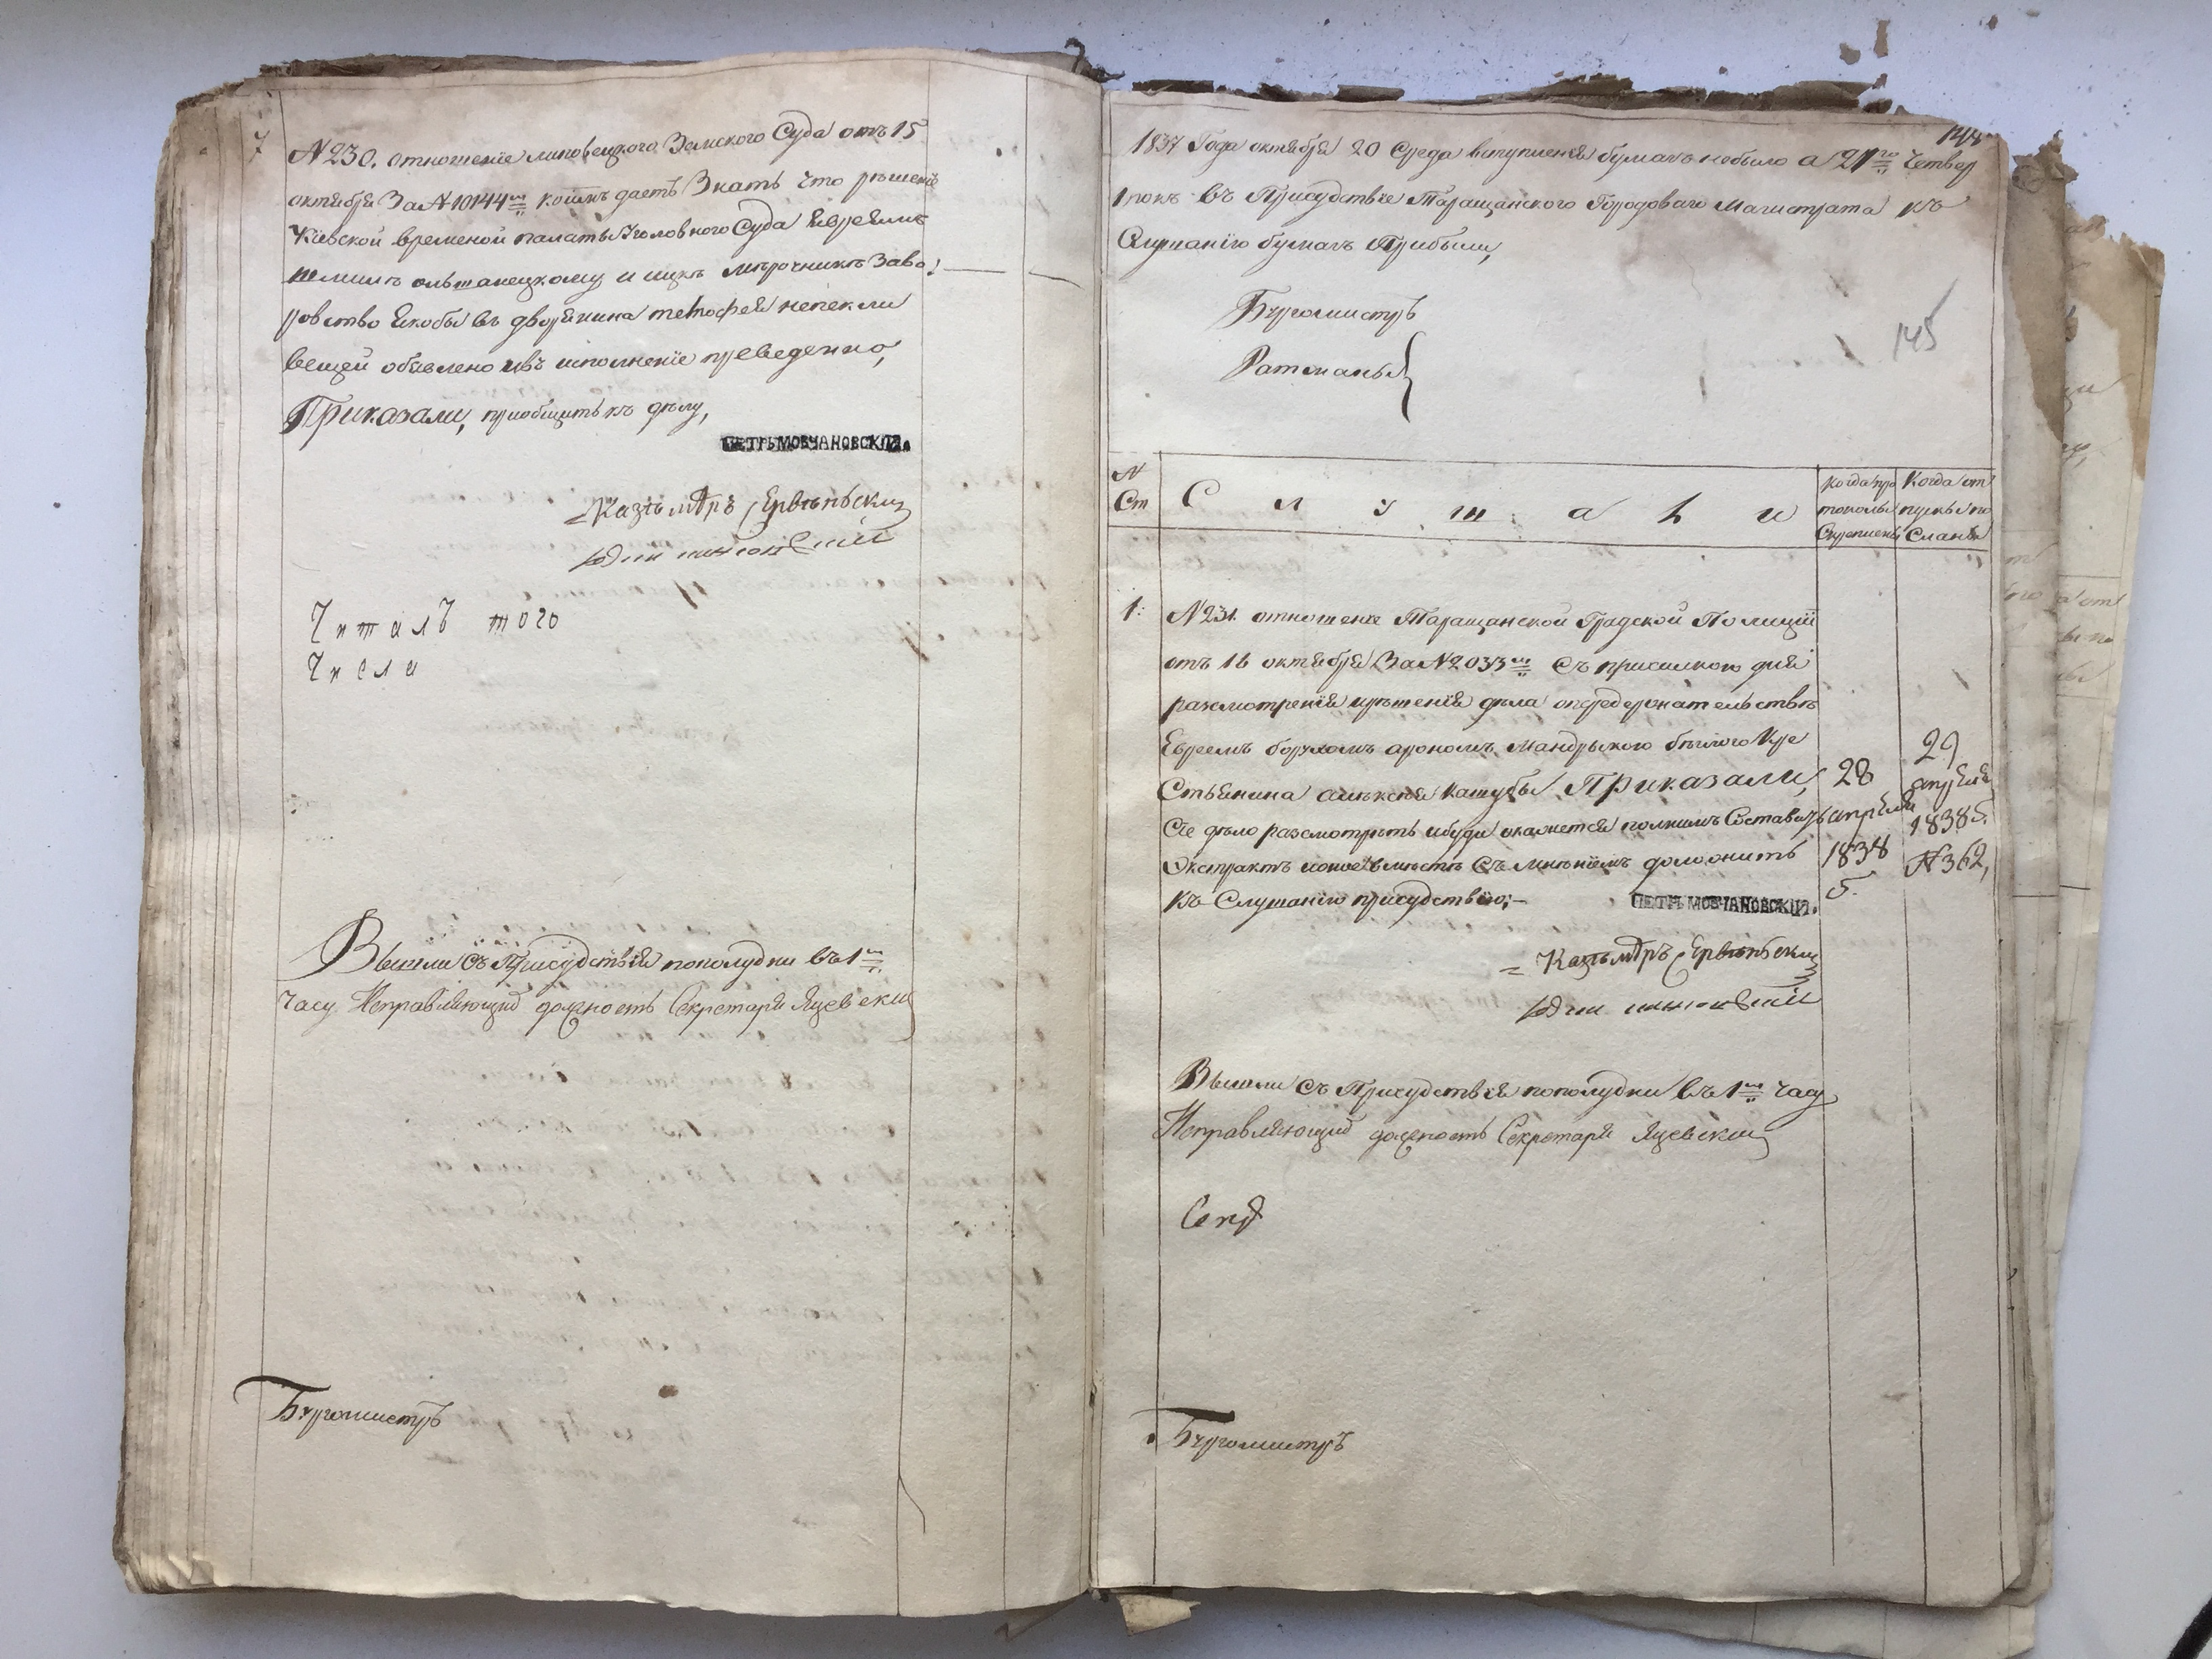 7
№ 230. отношенїе липовецкого Земского Суда отъ 15
октября За № 10144мъ коимъ даетъ Знать что рѣшенїе
Кіевской временой палаты Уголовного Суда Евреямъ
ольшанецкому и ицкѣ мѣрочникѣ Заво
ровство якобы въ дворянина
вещей обявлено ивъ исполненїе преведенно,
Приказали, приобщить къ дѣлу,
ПЕТРЪ МОВЧАНОВСКІЙ.
Читалъ того
Числа
Вышли съ Присудствїя пополудни въ 1мъ
часу Исправляющій должность Секретаря Яцевскій
Бургомистръ
144
1837 Года октября 20 Среда вступленїя бумагъ небыло а 21го Четвер
1 токъ въ Присудствїе Таращанского Городоваго Магистрата къ
Слушанїю бумагъ Прибыли,
Бургомистръ
Ратманы
145
№
Ст
С л у ш а л и
когда про
токолы
Скреплены
Когда от
пуски по
Сланы
1:
№ 231. отношенїе Таращанской Градской Полицїи
отъ 16 октября За № 2033мъ съ присилкою для
разсмотренїя ирѣшенїя дѣла опередержательствѣ
Евреемъ борухомъ арономъ Мандрыского бѣглого Кре
Стьянина алѣксѣя кашубы Приказали,
Сїе дѣло разсмотрѣть ибуди окажется полнымъ Составить
Экстрактъ коное вмѣстѣ Съ мнѣнїемъ доложить
къ Слушанїю присудствїю;-
28
апрѣля
1838
г.
29
апрѣля
1838 г.
№ 362,
ПЕТРЪ МОВЧАНОВСКІЙ.
Вышли съ Присудствїя пополудни въ 1мъ часу
Исправляющій должность Секретаря Яцевскій
Бургомистръ